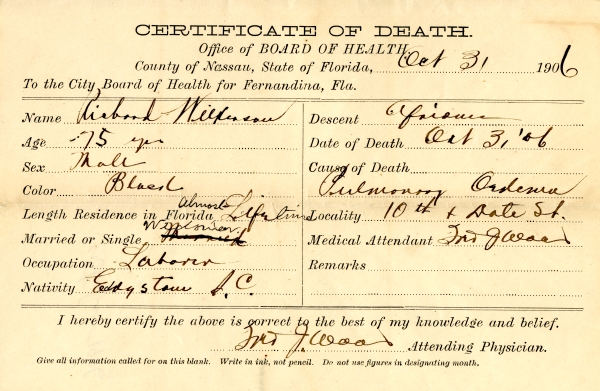 CERTIFICATE OF DEATH.
Office of BOARD OF HEALTH,
County of Nassau, State of Florida, Oct 31 1906
To the City Board of Health for Fernandina, Fla.
Name Richard Wilkerson
Age 75 yrs
Sex Male
Color Black
Length Residence in Florida almost Lifetime
Married or Single Widower
Occupation Laborer
Nativity S.C.
Descent African
Date of Death Oct 31 '06
Cause of Death
Pulmonary Oedema
Locality 10th & Date St.
Medical Attendant Fred J Wood
Remarks
I hereby certify the above is correct to the best of my knowledge and belief.
Fred J. Wood Attending Physician.
Give all information called for on this blank. Write in ink, not pencil. Do not use figures in designating month.